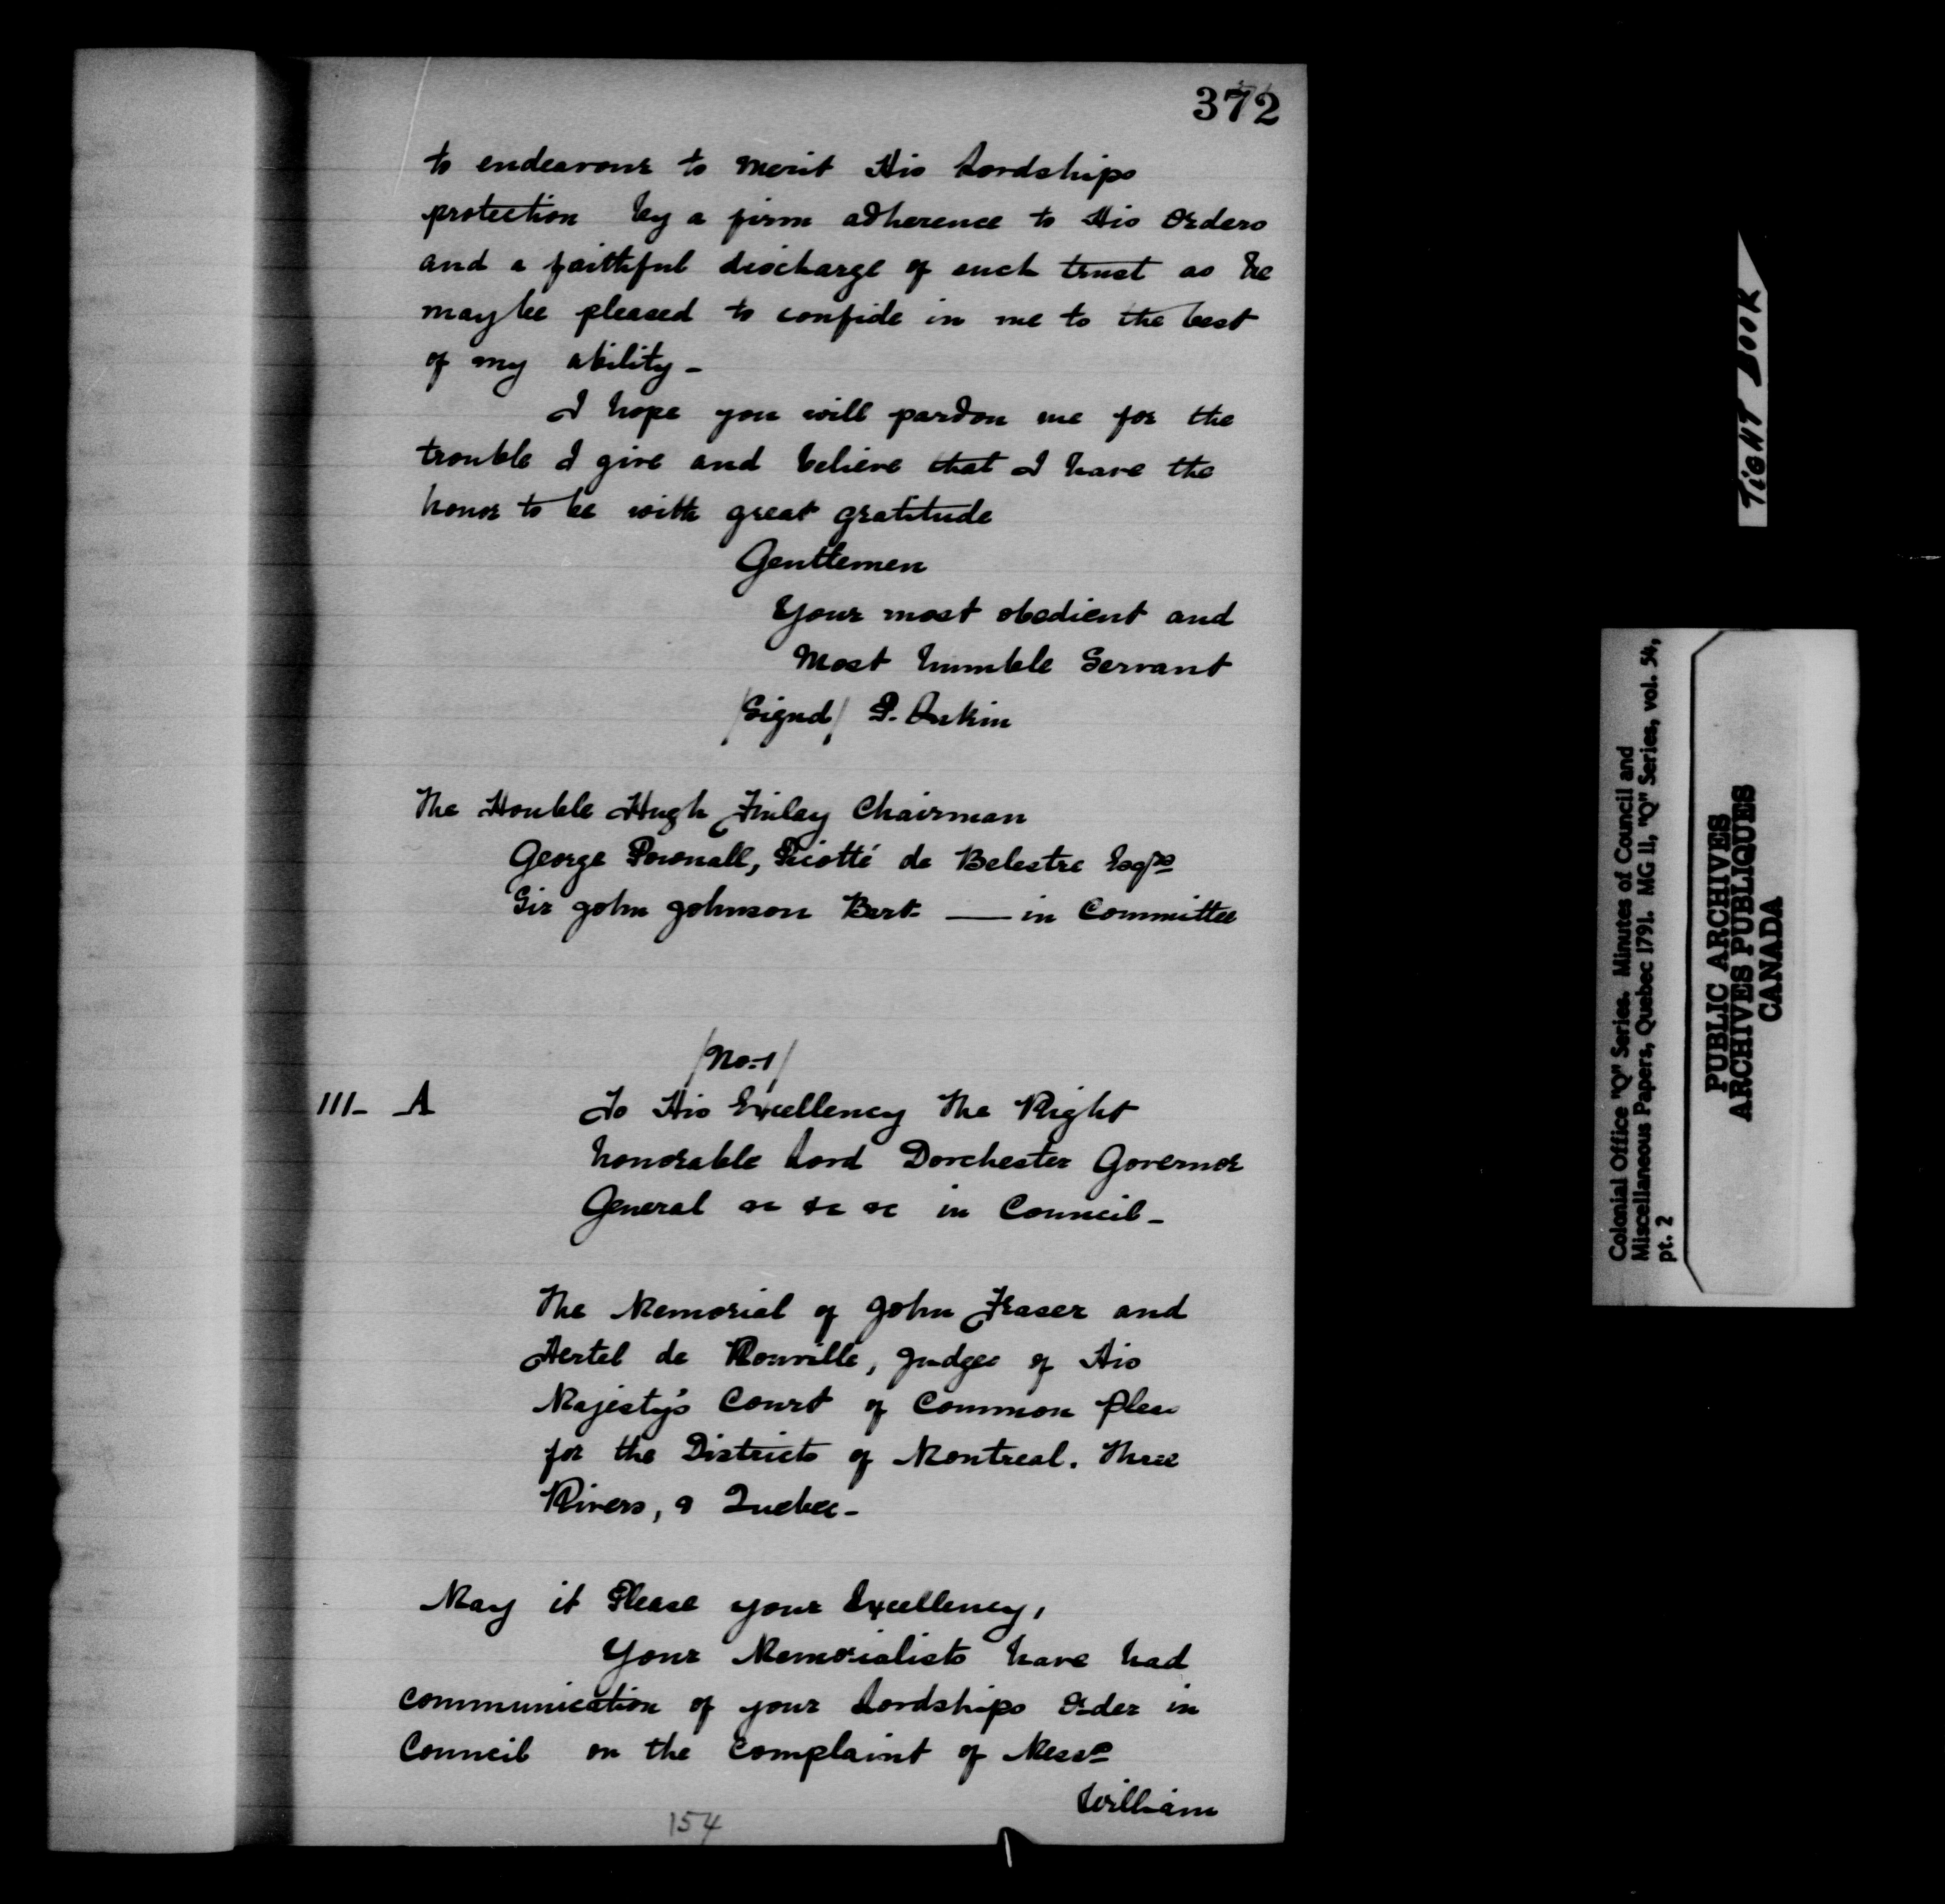 372
to endeavour to merit His Lordships
protection by a firm adherence to His Orders
and a faithful discharge of such trust as he
may be pleased to confide in me to the best
of my ability -
I hope you will pardon me for the
trouble I give and believe that I have the
honor to be with great gratitude
Gentlemen
Your most obedient and
Most humble Servant
/Signd/ P.
The Honble Hugh Finlay Chairman
George Pownall, Picotté de Belestre Esqrs
Sir John Johnson Bart. — in Committee
/No-1/
111- A
To His Excellency The Right
honorable Lord Dorchester Governor
General &c &c &c in Council -
The Memorial of John Fraser and
Hertel de Rouville, Judges of His
Majesty's Court of Common pleas
for the Districts of Montreal. Three
Rivers, & Quebec -
May it Please your Excellency,
Your Memorialists have had
communication of your Lordships Order in
Council on the complaint of Messrs
William
154
TIGHT BOOK
Colonial Office "Q" Series. Minutes of Council and
Miscellaneous Papers, Quebec 1791. MG 11, "Q" Series, vol. 54,
pt. 2
PUBLIC ARCHIVES
ARCHIVES PUBLIQUES
CANADA